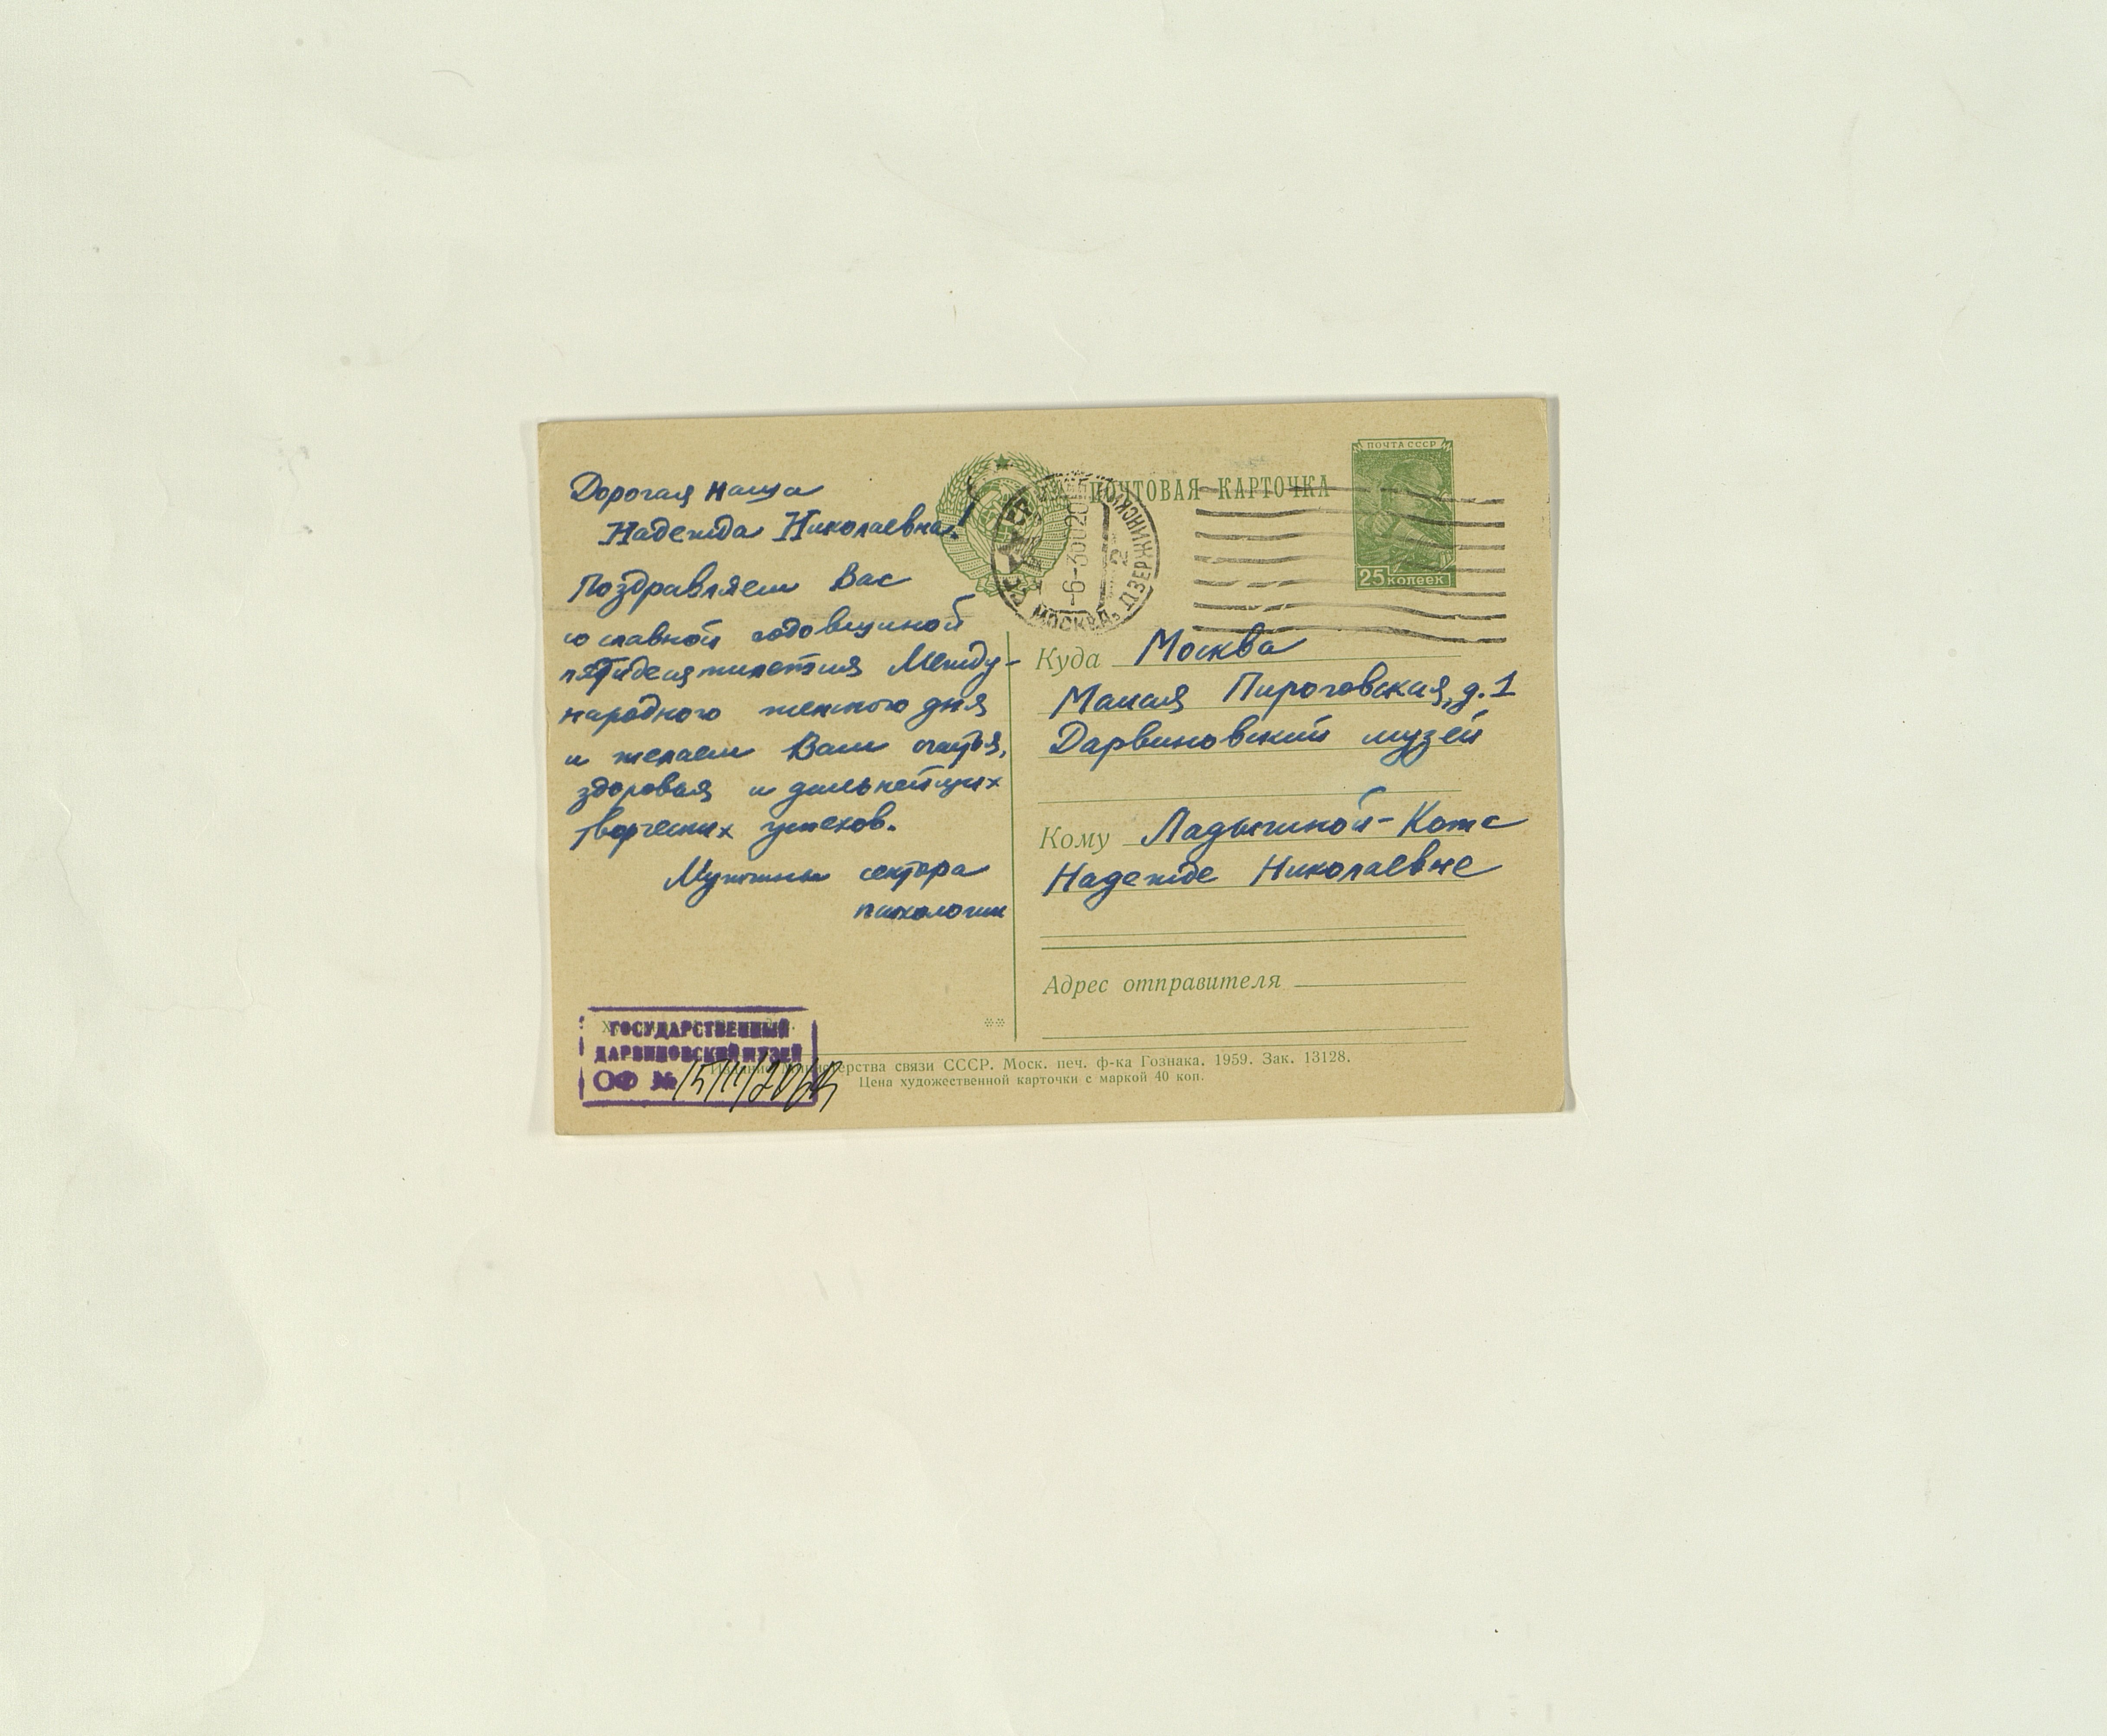 Дорогая наша
Надежда Николаевна!
Поздравляем Вас
со славной годовщиной
пятидесятилетия Между-
народного женского дня
и желаем Вам счастья,
здоровья и дальнейших
творческих успехов.
Мужчины сектора
психологии
ПОЧТОВАЯ КАРТОЧКА
ПОЧТА СССР
25 копеек
МОСКВА, ДЗЕРЖИНСКИЙ
-6-360020
Куда Москва
Малая Пироговская, д. 1
Дарвиновский музей
Кому Ладыгиной-Котс
Надежде Николаевне
Адрес отправителя
ГОСУДАРСТВЕННЫЙ
ДАРВИНОВСКИЙ МУЗЕЙ
ОФ №
Издание Министерства связи СССР. Моск. печ. ф-ка Гознака. 1959. Зак. 13128.
Цена художественной карточки с маркой 40 коп.